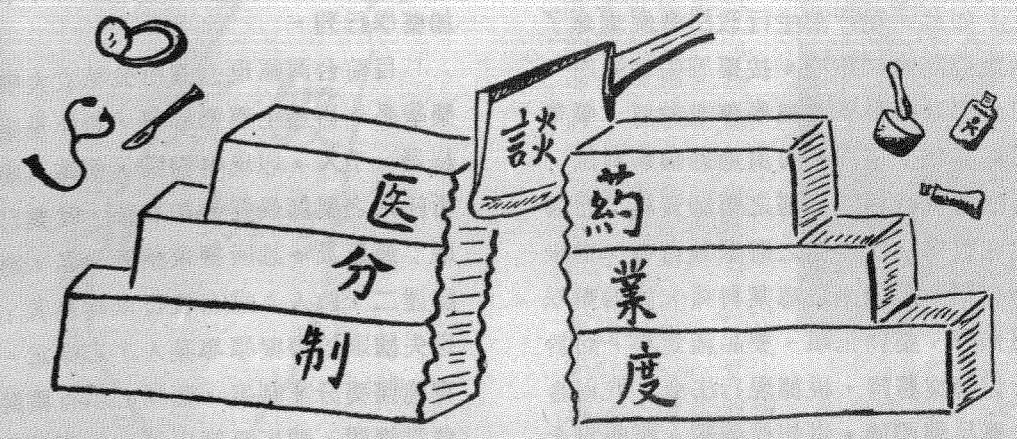 談
医葯
分業
制度